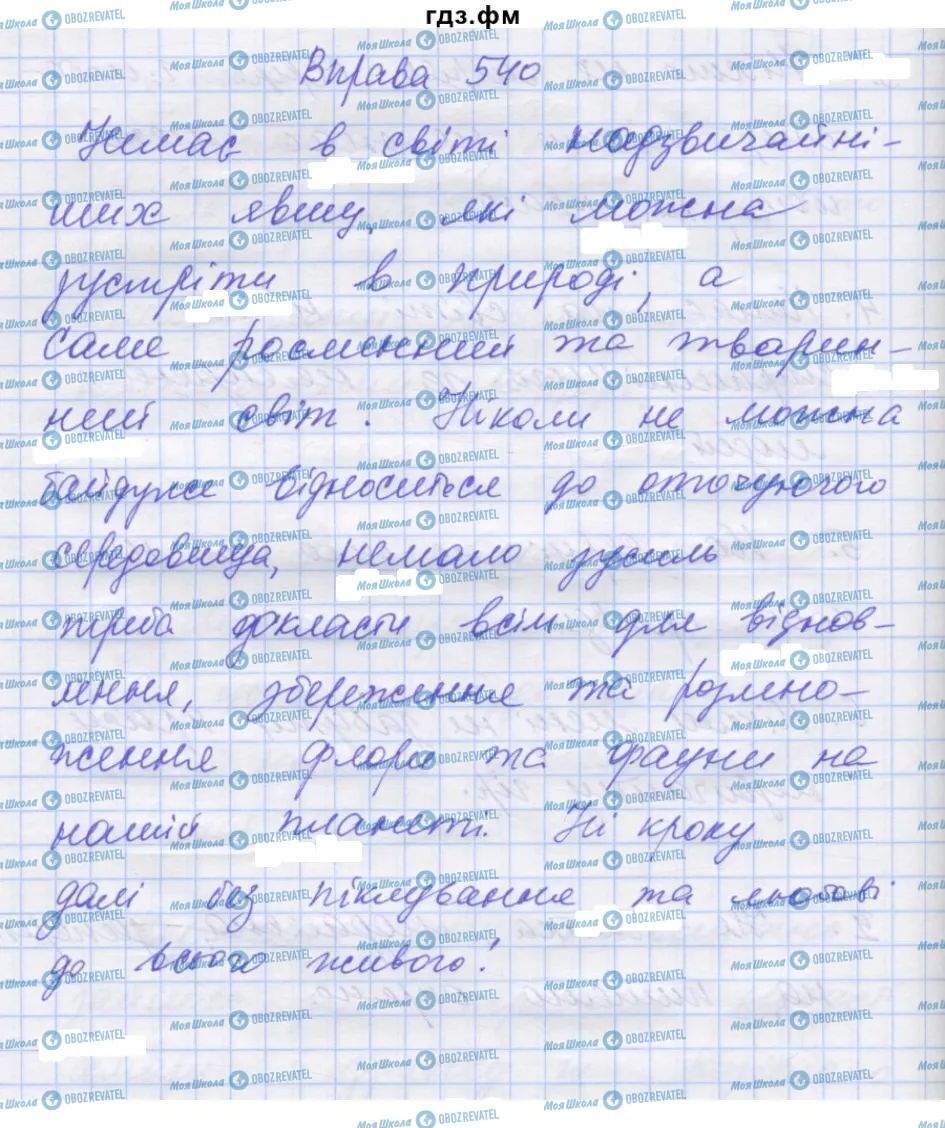 гдз.фм
Вправа 540
Немає в світі надзвичайні-
ших явищ, які можна
зустріти в природі, а
саме рослинний та тварин-
ний світ. Ніколи не можна
байдуже відноситися до оточуючого
середовища, немало зусиль
треба докласти всім для віднов-
лення, збереження та розмно-
ження флори та фауни на
нашій планеті. Ні кроку
далі без піклування та любові
до всього живого!